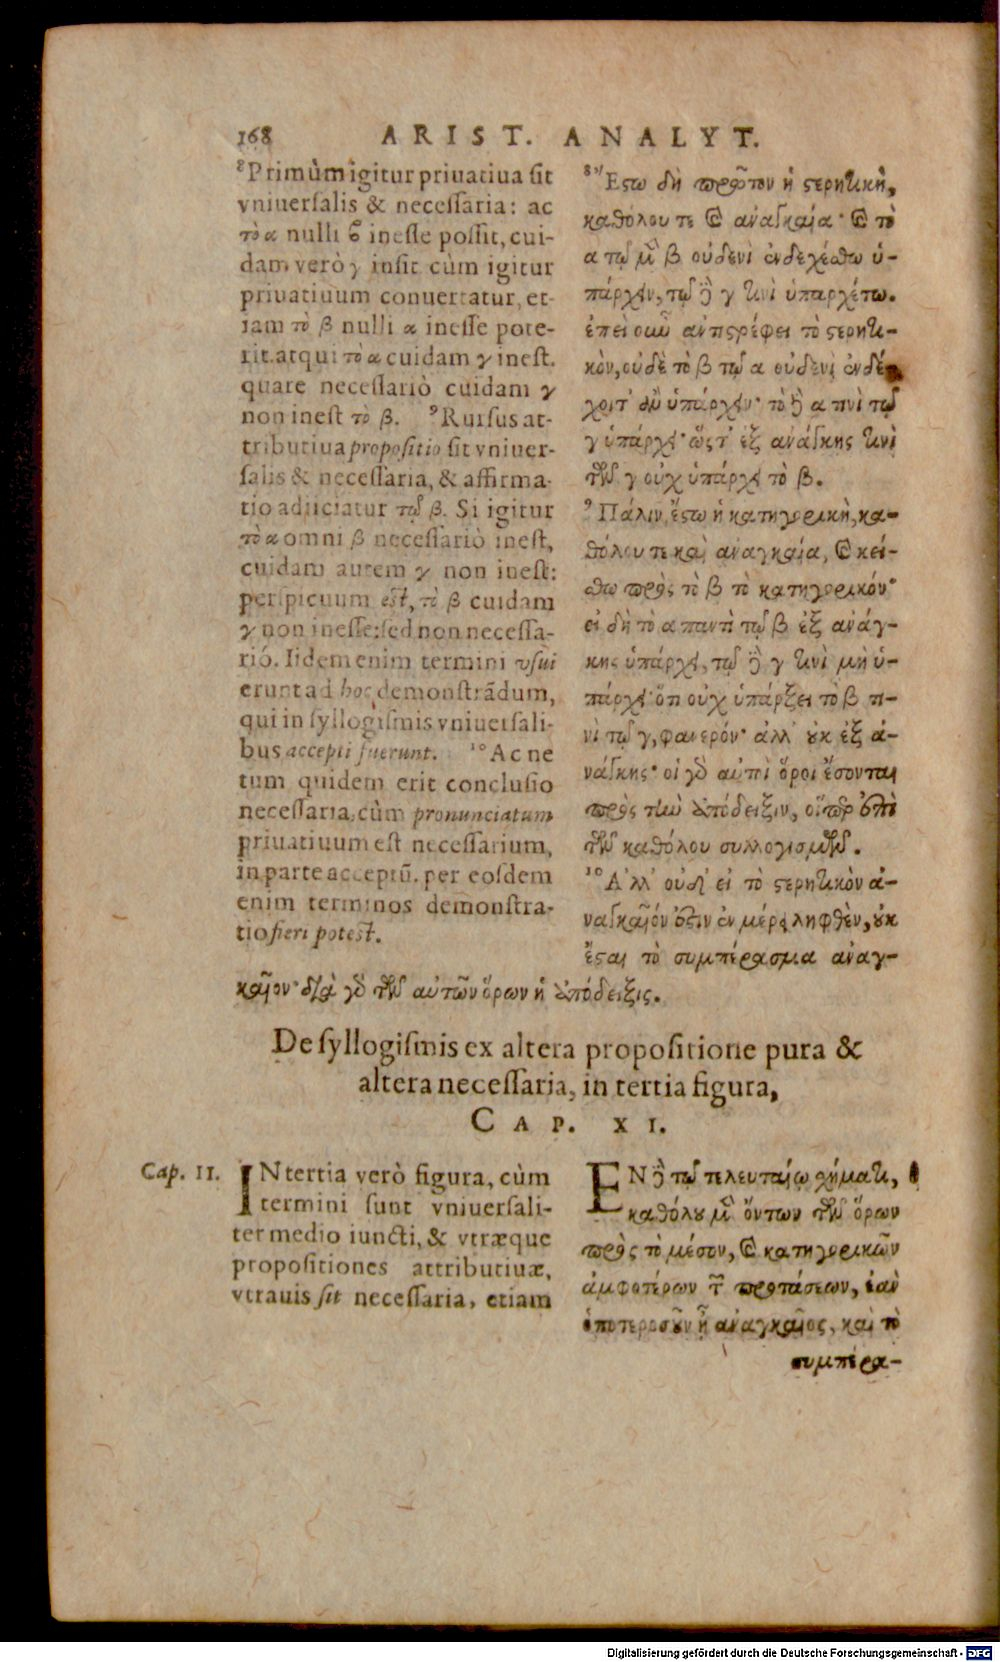 168 ARIST. ANALYT.
⁸Primùm igitur priuatiua sit
vniuersalis & necessaria: ac
τὸ α nulli β inesse possit, cui-
dam verò γ insit cùm igitur
priuatiuum conuertatur, et-
iam τὸ β nulli α inesse pote-
rit. atqui τὸ α cuidam γ inest.
quare necessariò cuidam γ
non inest τὸ β. ⁹Rursus at-
tributiua propositio sit vniuer-
salis & necessaria, & affirma-
tio adiiciatur τῷ β. Si igitur
τὸ α omni β necessariò inest,
cuidam autem γ non inest:
perspicuum est, τὸ β cuidam
γ non inesse: sed non necessa-
riò. Iidem enim termini vsui
erunt ad hoc demonstrādum,
qui in syllogismis vniuersali-
bus accepti fuerunt. ¹⁰Ac ne
tum quidem erit conclusio
necessaria, cùm pronunciatum
priuatiuum est necessarium,
in parte acceptū. per eosdem
enim terminos demonstra-
tio fieri potest.
⁸Ἔστω δὴ πρῶτον ἡ στερητικὴ,
καθόλου τε καὶ ἀναγκαία· καὶ τὸ
α τῷ μὲν β οὐδενὶ ἐνδεχέσθω ὑ-
πάρχειν, τῷ δὲ γ τινὶ ὑπαρχέτω.
ἐπεὶ οὖν ἀντιστρέφει τὸ στερητι-
κὸν, οὐδὲ τὸ β τῷ α οὐδενὶ ἐνδέ-
χοιτ' ἂν ὑπάρχειν· τὸ δὲ α τινὶ τῷ
γ ὑπάρχει· ὥστ' ἐξ ἀνάγκης τινὶ
τῶν γ οὐχ ὑπάρχει τὸ β.
⁹Πάλιν ἔστω ἡ κατηγορικὴ, κα-
θόλου τε καὶ ἀναγκαία, καὶ κεί-
σθω πρὸς τὸ β τὸ κατηγορικόν·
εἰ δὴ τὸ α παντὶ τῷ β ἐξ ἀνάγ-
κης ὑπάρχει, τῷ δὲ γ τινὶ μὴ ὑ-
πάρχει· ὅτι οὐχ ὑπάρξει τὸ β τι-
νὶ τῷ γ, φανερόν· ἀλλ' οὐκ ἐξ ἀ-
νάγκης· οἱ γὰρ αὐτοὶ ὅροι ἔσονται
πρὸς τὴν ἀπόδειξιν, οἵπερ ἐπὶ
τῶν καθόλου συλλογισμῶν.
¹⁰Ἀλλ' οὐδ' εἰ τὸ στερητικὸν ἀ-
ναγκαῖόν ἐστιν ἐν μέρει ληφθὲν, οὐκ
ἔσται τὸ συμπέρασμα ἀναγ-
καῖον· διὰ γὰρ τῶν αὐτῶν ὅρων ἡ ἀπόδειξις.
De syllogismis ex altera propositione pura &
altera necessaria, in tertia figura,
CAP. XI.
Cap. 11.
IN tertia verò figura, cùm
termini sunt vniuersali-
ter medio iuncti, & vtræque
propositiones attributiuæ,
vtrauis sit necessaria, etiam
ΕΝ δὲ τῷ τελευταίῳ σχήματι,
καθόλου μὲν ὄντων τῶν ὅρων
πρὸς τὸ μέσον, καὶ κατηγορικῶν
ἀμφοτέρων τῶν προτάσεων, ἐὰν
ὁποτεροσοῦν ᾖ ἀναγκαῖος, καὶ τὸ
συμπέρα-
Digitalisierung gefördert durch die Deutsche Forschungsgemeinschaft - DFG